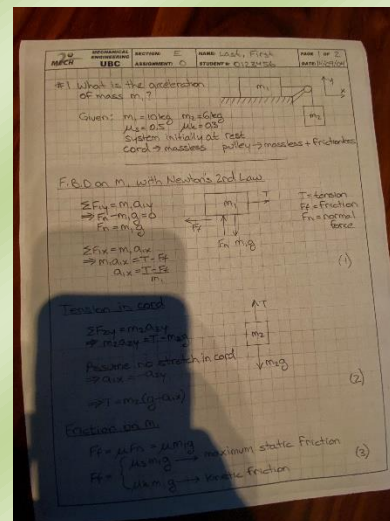 MECH 2
MECHANICAL ENGINEERING
UBC
SECTION: E
ASSIGNMENT: 0
NAME: Last, First
STUDENT #: 0123456
PAGE 1 OF 2
DATE:
#1 What is the acceleration
of mass m₁?
m₁
y
x
m₂
Given: m₁=10kg m₂=6kg
μs=0.5 μk=0.3
system initially at rest
cord → massless pulley → massless + frictionless
F.B.D on m₁ with Newton's 2nd Law
ΣF₁y = m₁a₁y
⇒ Fn - m₁g = 0
Fn = m₁g
m₁
T
Ff
Fn m₁g
T = tension
Ff = friction
Fn = normal
force
ΣF₁x = m₁a₁x
⇒ m₁a₁x = T - Ff
a₁x = (T - Ff)/m₁
(1)
Tension in cord
ΣF₂y = m₂a₂y
⇒ m₂a₂y = T - m₂g
T
m₂
m₂g
Assume no stretch in cord
⇒ a₁x = -a₂y
⇒ T = m₂(g-a₁x)
(2)
Friction on m₁
Ff = μFn = μm₁g
Ff = { μsm₁g → maximum static friction
μkm₁g → kinetic friction
(3)